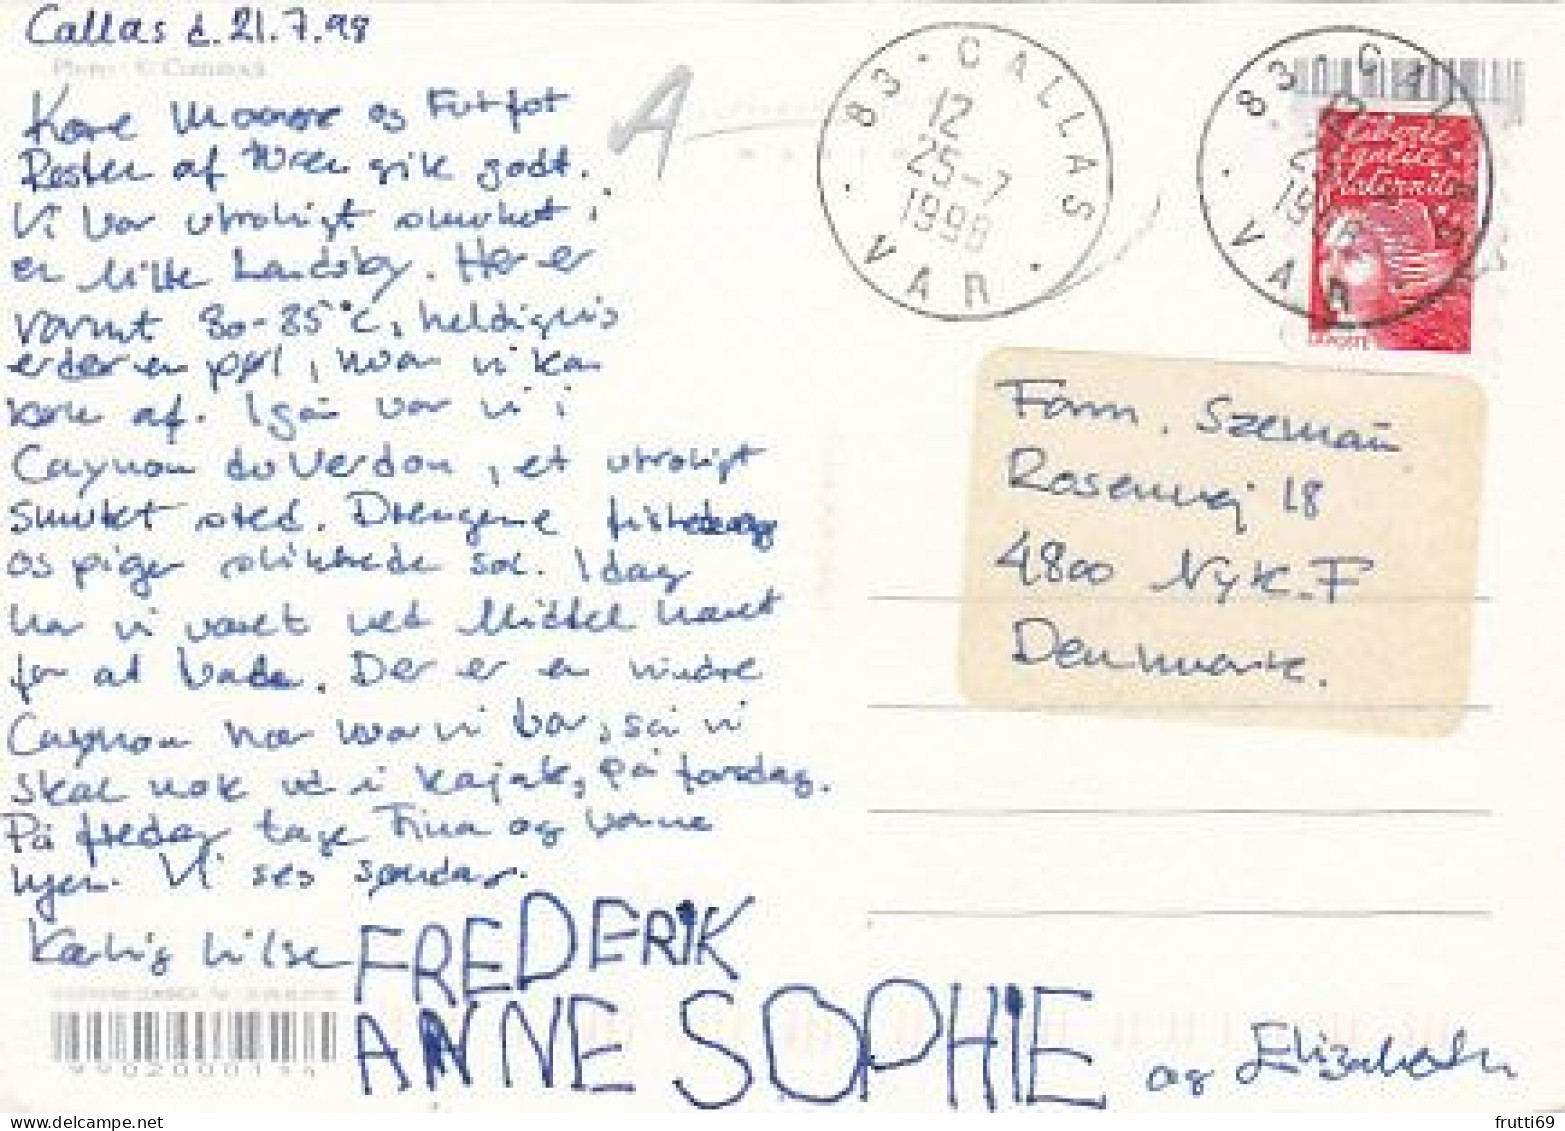 Callas d. 21.7.98
Photo : © Comstock
Kære og
Resten af gik godt.
Vi bor utroligt smukt i
en lille Landsby. Her er
varmt 30-35°C, heldigvis
er der en pøl, hvor vi kan
køle af. I går var vi i
Caynon du Verdon, et utroligt
smukt sted. Drengene
og piger slikkede sol. I dag
har vi været ved Middelhavet
for at bade. Der er en mindre
Caynon nær hvor vi bor, så vi
skal nok ud i kajak, på torsdag.
På fredag tage Trina og
hjem. Vi ses søndag.
Kærlig hilsen FREDERIK
ANNE SOPHIE og Elizabeth
A
83 - CALLAS
12
25-7
1998
VAR
83 - CALLAS
VAR
Liberté
égalité
fraternité
LA POSTE
Fam. Szemañ
Rosenvej 18
4800 Nyk. F
Denmark.
frutti69